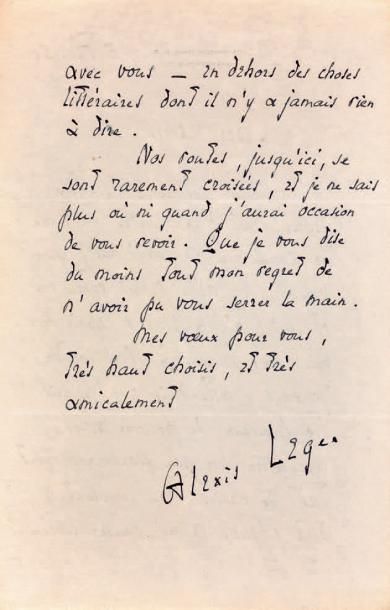 avec vous — en dehors des choses
littéraires dont il n'y a jamais rien
à dire.
Nos routes, jusqu'ici, se
sont rarement croisées, et je ne sais
plus où ni quand j'aurai occasion
de vous revoir. Que je vous dise
du moins tout mon regret de
n'avoir pu vous serrer la main.
Mes vœux pour vous,
très haut choisis, et très
amicalement
Alexis Leger